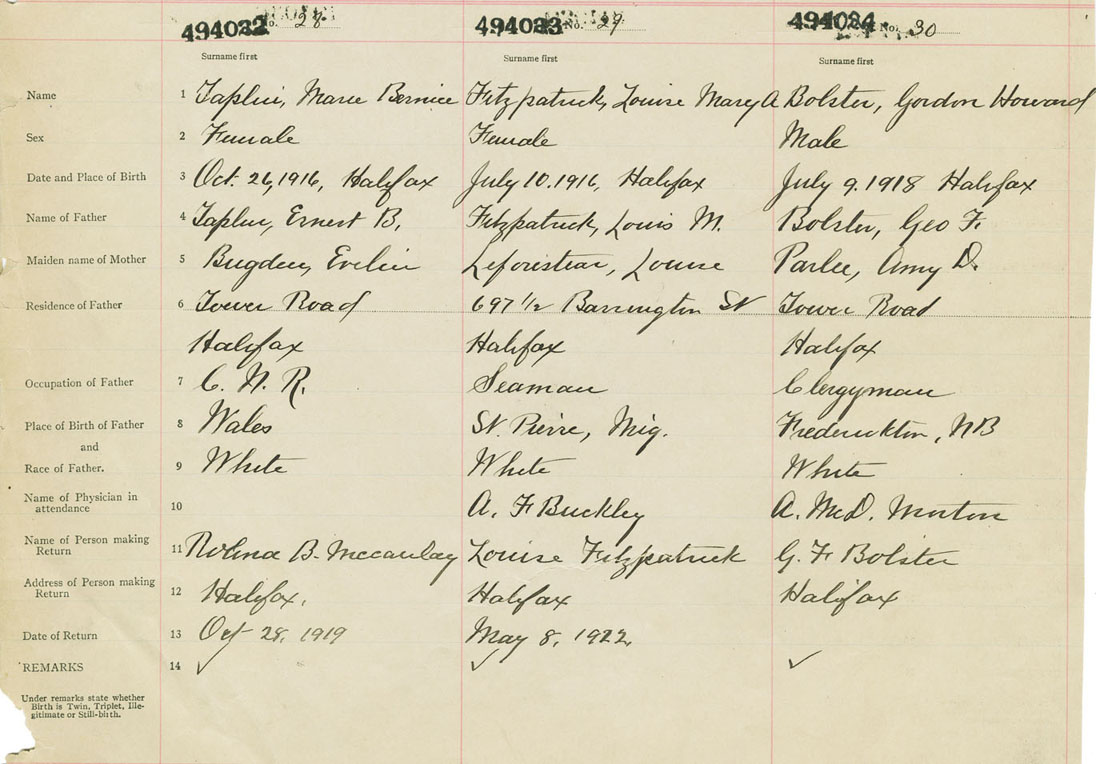 494032 No. 28 494033 No. 29 494034 No. 30
Surname first Surname first Surname first
Name 1 Taplin, Maree Bernice Fitzpatrick, Louise Mary A Bolster, Gordon Howard
Sex 2 Female Female Male
Date and Place of Birth 3 Oct. 26, 1916, Halifax July 10. 1916, Halifax July 9. 1918 Halifax
Name of Father 4 Taplin, Ernest B. Fitzpatrick, Louis M. Bolster, Geo F.
Maiden name of Mother 5 Bugden, Evelin Leforestear, Louise Parlee, Amy D.
Residence of Father 6 Tower Road 697 1/2 Barrington St Tower Road
Halifax Halifax Halifax
Occupation of Father 7 C. N. R. Seaman Clergyman
Place of Birth of Father 8 Wales St. Pierre, Miq. Fredericton, NB
and
Race of Father. 9 White White White
Name of Physician in
attendance 10 A. F Buckley A. McD. Morton
Name of Person making
Return 11 B. Mccaulay Louise Fitzpatrick G. F Bolster
Address of Person making
Return 12 Halifax. Halifax Halifax
Date of Return 13 Oct 28, 1919 May 8, 1922,
REMARKS 14 ✓ ✓ ✓
Under remarks state whether
Birth is Twin, Triplet, Ille-
gitimate or Still-birth.